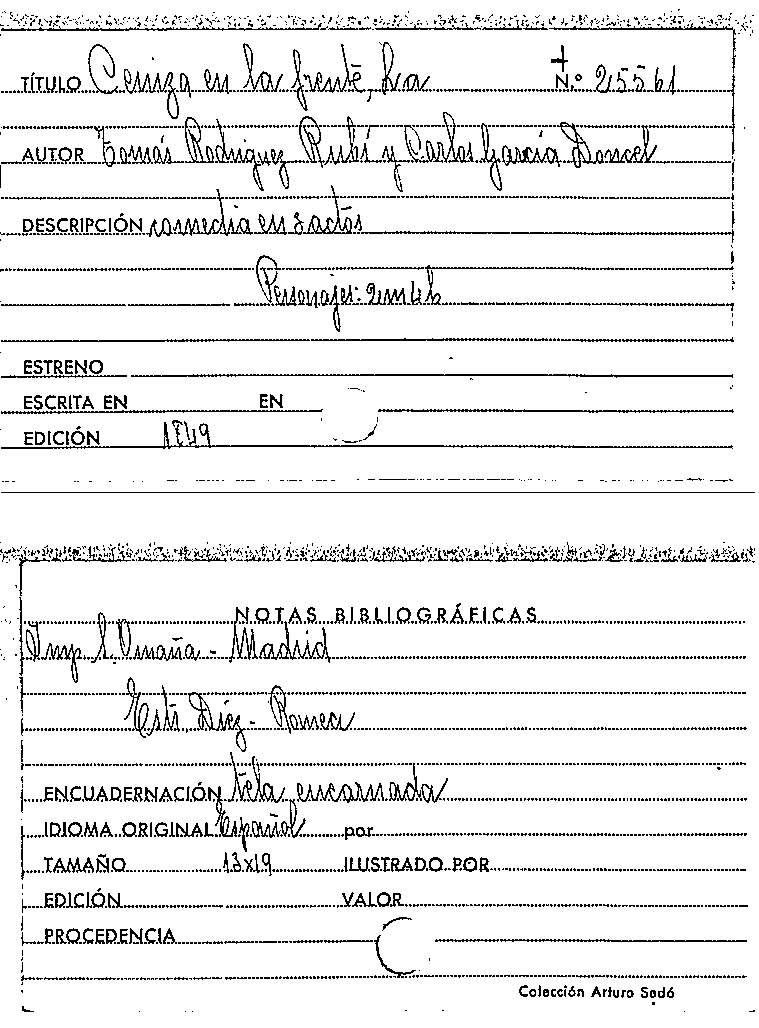 TÍTULO Ceniza en la frente, La + N.º 25561
AUTOR Tomás Rodriguez Rubí y Carlos García Doncel
DESCRIPCIÓN comedia en 3 actos
Personajes: 2m 4h
ESTRENO
ESCRITA EN EN
EDICIÓN 1849
NOTAS BIBLIOGRÁFICAS
Imp S. Omaña - Madrid
Estr. Díez - Romea
ENCUADERNACIÓN tela encarnada
IDIOMA ORIGINAL Español por
TAMAÑO 13x19 ILUSTRADO POR
EDICIÓN VALOR
PROCEDENCIA
Colección Arturo Sedó